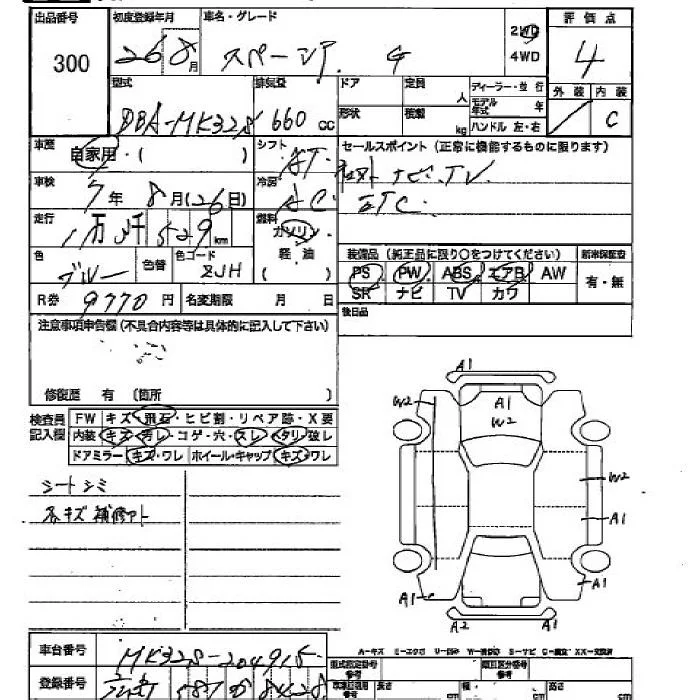 出品番号 初度登録年月 車名・グレード 評価点
300 26 8月 スペーシア G 2WD 4WD 4
型式 排気量 ドア 定員 人 ディーラー・並行 外装 内装
DBA-MK32S 660cc 形状 積載 kg モデル年式 年 ハンドル 左・右 C
車歴 自家用・( ) シフト AT セールスポイント（正常に機能するものに限ります）
車検 7年 8月(26日) 冷房 AC ナビ.TV
ETC.
走行 1万 529km 燃料 ガソリン
軽油
( )
色 ブルー 色替 色コード ZJH 装備品（純正品に限り○をつけてください） 新車保証書
PS PW ABS エアB AW 有・無
SR ナビ TV カワ
R券 9770円 名変期限 月 日
後日品
注意事項申告欄（不具合内容等は具体的に記入して下さい）
修復歴 有 （箇所 ）
検査員記入欄 FW キズ・飛石・ヒビ割・リペア跡・X要
内装 キズ・汚レ・コゲ・穴・スレ・ヘタリ・破レ
ドアミラー キズ・ワレ ホイール・キャップ キズ・ワレ
シートシミ
各キズ補修アト
A1
W2 A1
W2
W2
A1
A1 A1
A2 A1
車台番号 MK32S-204915
登録番号 587
A-キズ
型式指定番号 参考 類別区分番号 参考
長さ cm 幅 cm 高さ cm